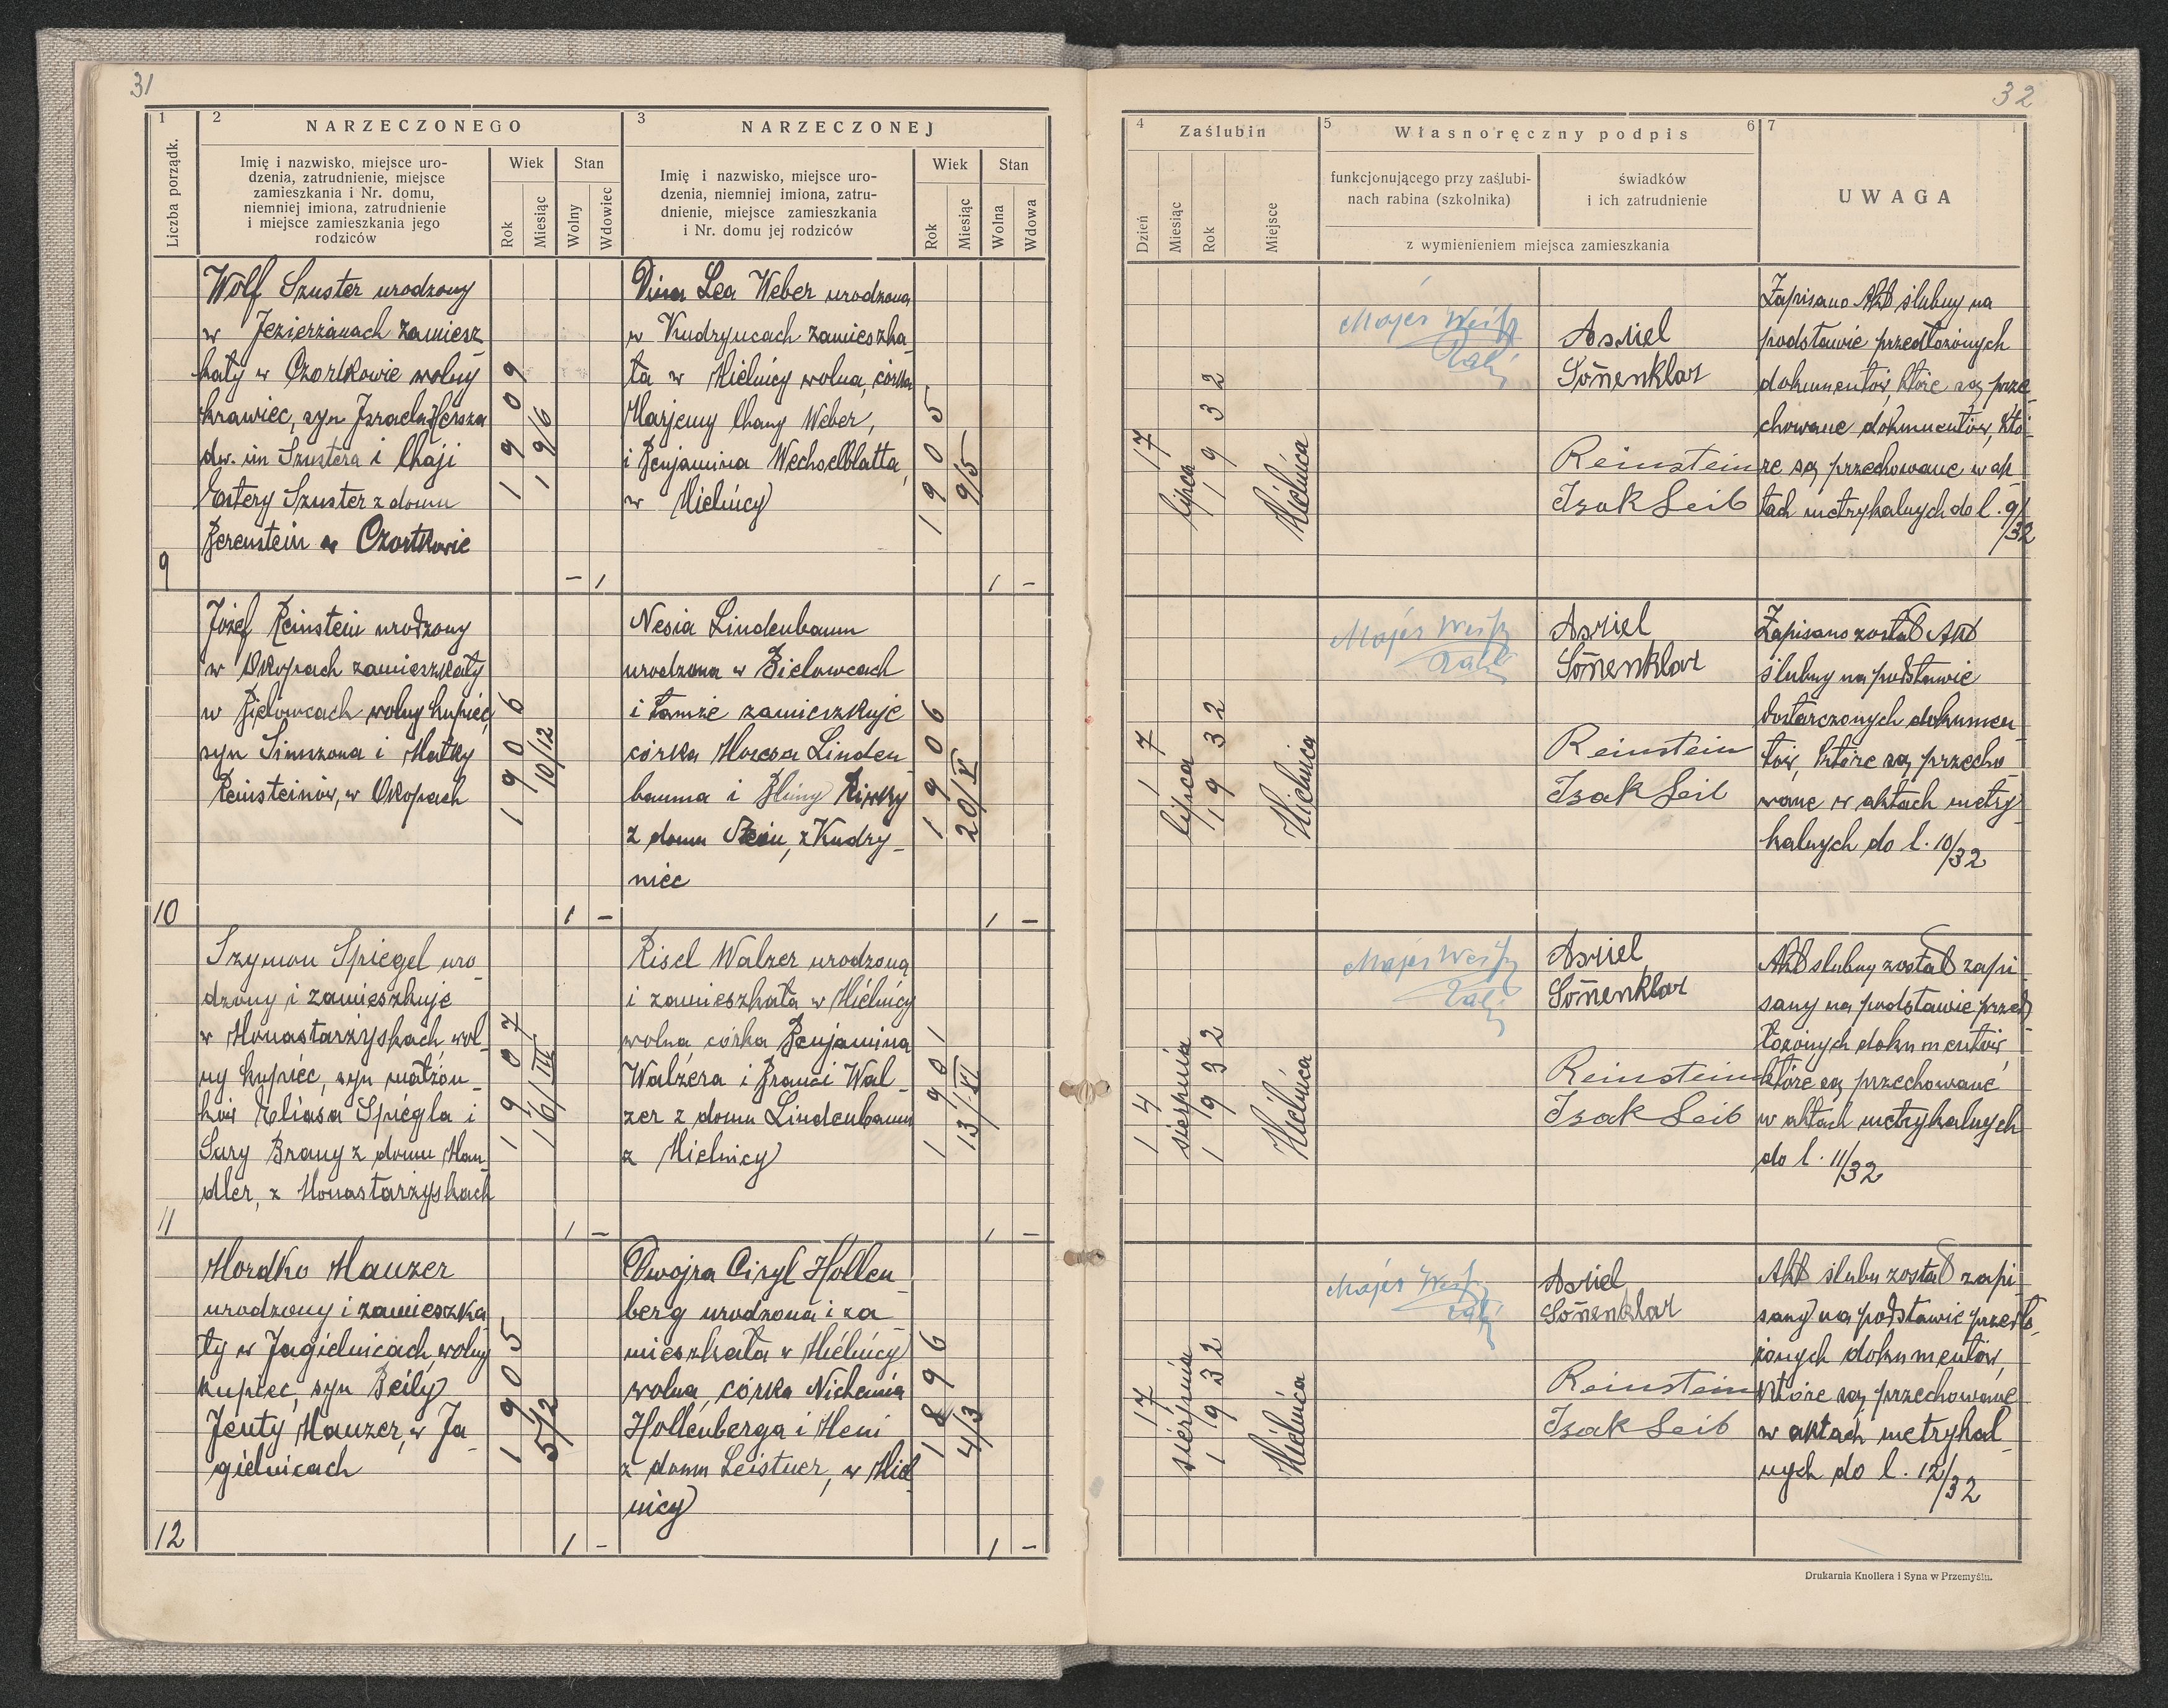 31
1
2
NARZECZONEGO
3
NARZECZONEJ
Liczba porządk.
Imię i nazwisko, miejsce uro-
dzenia, zatrudnienie, miejsce
zamieszkania i Nr. domu,
niemniej imiona, zatrudnienie
i miejsce zamieszkania jego
rodziców
Wiek
Stan
Rok
Miesiąc
Wolny
Wdowiec
Imię i nazwisko, miejsce uro-
dzenia, niemniej imiona, zatru-
dnienie, miejsce zamieszkania
i Nr. domu jej rodziców
Wiek
Stan
Rok
Miesiąc
Wolna
Wdowa
9
Wolf Szuster urodzony
w Jezierzanach zamiesz
kały w Czortkowie wolny
krawiec, syn Izraela Hersza
dw. im Szustera i Chaji
Estery Szuster z domu
Berenstein w Czortkowie
1909
19/6
– 1
Dina Lea Weber urodzona
w Kudryncach zamieszka
ła w Mielnicy wolna, córka
Marjemy Chany Weber,
i Benjamina Wechselblatta,
w Mielnicy
1905
9/5
1 –
10
Józef Reinstein urodzony
w Okopach zamieszkały
w Bielowcach wolny kupiec,
syn Simszona i Matky
Reinsteinów, w Okopach
1906
10/12
1 –
Nesia Lindenbaum
urodzona w Bielowcach
i tamże zamieszkuje
córka Moszesa Linden
bauma i Blimy Riwky
z domu Stein, z Kudry_
niec
1906
20/V
1 –
11
Szymon Spiegel uro_
dzony i zamieszkuje
w Monastarzyskach wol_
ny kupiec, syn małżon_
ków Eliasa Spiegla i
Sury Brany z domu Han_
dler, z Monastarzyskach
1907
16/III
1 –
Risel Walzer urodzona
i zamieszkała w Mielnicy
wolna córka Benjamina
Walzera i Branci Wal_
zer z domu Lindenbaum
z Mielnicy
1901
13/XI
1 –
12
Mordko Mauzer
urodzony i zamieszka
ły w Jagielnicach wolny
kupiec, syn Beily
Jenty Mauzer, w Ja_
gielnicach
1905
5/12
1 –
Dwojra Ciryl Hollen_
berg urodzona i za
mieszkała w Mielnicy
wolna, córka Nichemia
Hollenberga i Heni
z domu Leistner, w Miel
nicy
1896
4/3
1 –
32
4
Zaślubin
5
Własnoręczny podpis
6
7
Dzień
Miesiąc
Rok
Miejsce
funkcjonującego przy zaślubi-
nach rabina (szkolnika)
świadków
i ich zatrudnienie
z wymienieniem miejsca zamieszkania
UWAGA
17
lipca
1932
Mielnica
Majer Weisz
Asriel
Son̄enklar
Reinstein
Izak Leib
Zapisano Akt ślubny na
podstawie przedłożonych
dokumentów, które są prze_
chowane dokumentów, któ_
re są przechowane w ak
tach metrykalnych do l. 9/32
17
lipca
1932
Mielnica
Majer Weisz
Asriel
Son̄enklar
Reinstein
Izak Leib
Zapisano został Akt
ślubny na podstawie
dostarczonych dokumen
tów, które są przecho
wane w aktach metry
kalnych do l. 10/32
14
sierpnia
1932
Mielnica
Majer Weisz
Asriel
Son̄enklar
Reinstein
Izak Leib
Akt ślubny został zapi
sany na podstawie przed
łożonych dokumentów
które są przechowane
w aktach metrykalnych
do l. 11/32
17
sierpnia
1932
Mielnica
Majer Weisz
Asriel
Son̄enklar
Reinstein
Izak Leib
Akt ślubu został zapi
sany na podstawie przedło_
żonych dokumentów,
które są przechowane
w aktach metrykal_
nych do l. 12/32
Drukarnia Knollera i Syna w Przemyślu.